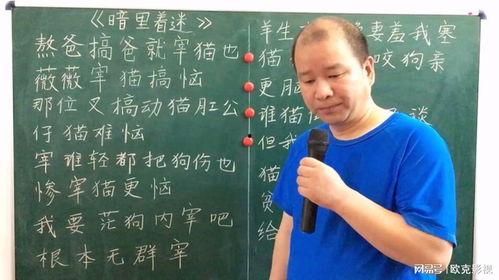 《暗里着迷》
熬爸搞爸就宰猫也
薇薇宰猫搞恼
那位又搞动猫肛公
仔猫难恼
宰难轻都把狗伤也
惨宰猫更恼
我要茫狗内宰吧
根本无群宰
羊生 妻羞我塞
猫 咬狗亲
更脑
谁猫 谈
但我
猫
贫
给
网易号/欧克影视